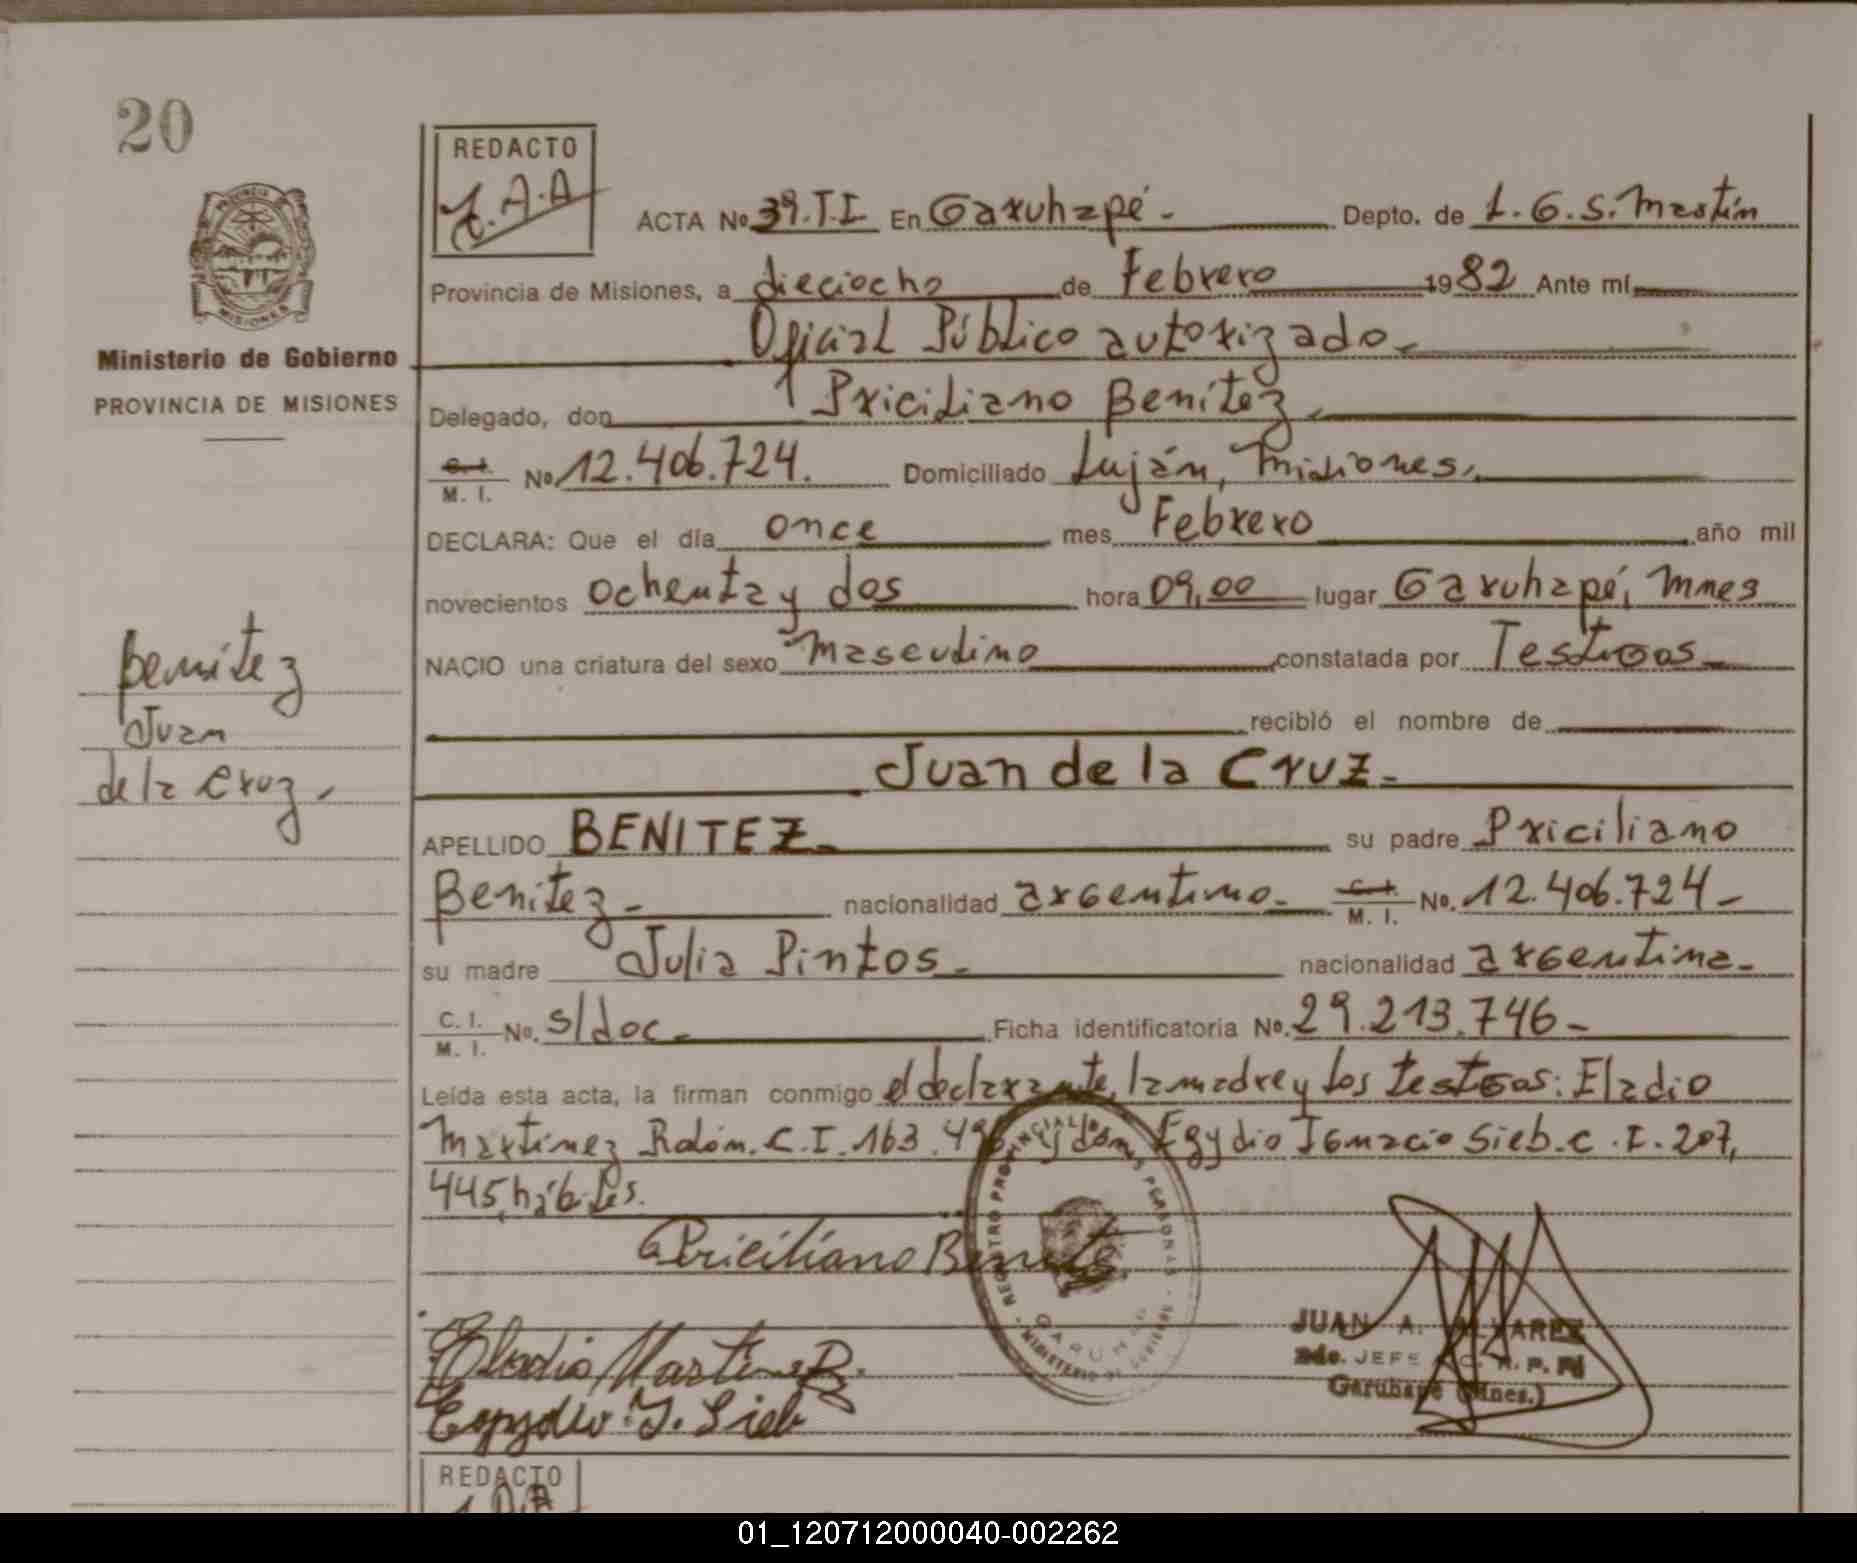 20
REDACTO
J.A.A
ACTA No 39.T.I En Garuhapé.- Depto. de L.G.S.Martín
Provincia de Misiones, a dieciocho de Febrero 1982 Ante mí
Ministerio de Gobierno
PROVINCIA DE MISIONES
Oficial Público autorizado.-
Delegado, don Priciliano Benítez.
C.I. M. I. No 12.406.724. Domiciliado Luján, Misiones.
DECLARA: Que el día once mes Febrero año mil
novecientos ochenta y dos hora 09,00 lugar Garuhapé, Mnes
NACIO una criatura del sexo Masculino constatada por Testigos
recibió el nombre de
Benítez
Juan
de la Cruz.-
Juan de la Cruz.-
APELLIDO BENITEZ.- su padre Priciliano
Benítez.- nacionalidad argentino.- C.I. M. I. No. 12.406.724-
su madre Julia Pintos.- nacionalidad argentina.-
C. I. M. I. No. s/doc.- Ficha identificatoria No. 29.213.746-
Leída esta acta, la firman conmigo el declarante, la madre y los testigos: Eladio
Martínez Rolón. C.I. 163.49 y don Egydio Ignacio Sieb. C.I. 207,
445, hábiles.
Priciliano Benitez
Eladio Martinez R.
Egydio I. Sieb
REGISTRO PROVINCIAL DE PERSONAS
MINISTERIO DE GOBIERNO
JUAN A. ALVAREZ
2do. JEFE
Garuhapé (Mnes.)
REDACTO
01_120712000040-002262